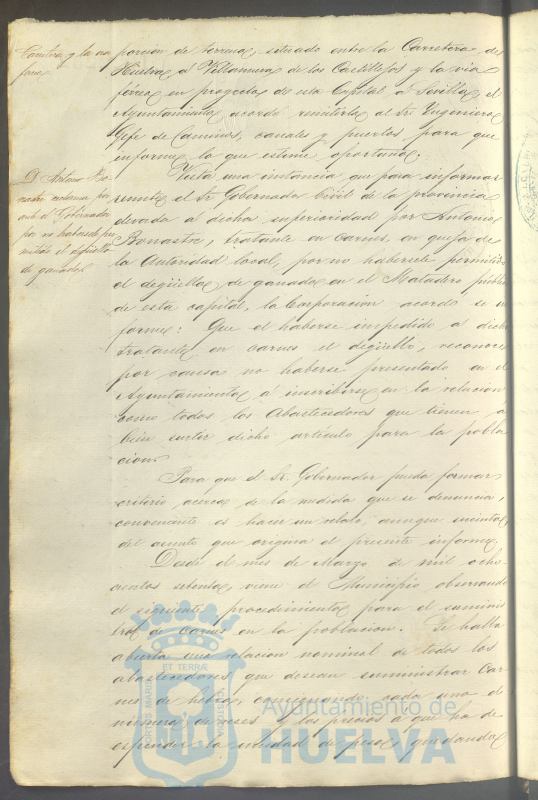 Carretera y la via
ferrea
D. Antonio
reclama por
ante el Gobernador
por no haberse per
mitido el degüello
de ganados
porcion de terreno, situado entre la Carretera de
Huelva á Villanueva de los Castillejos y la via
férrea en proyecto de esta Capital á Sevilla, el
Ayuntamiento acordó remitirla al Sr. Ingeniero
Gefe de Caminos, canales y puertos, para que
informe lo que estime oportuno.
Vista una instancia que para informar
remite el Sr. Gobernador Civil de la provincia
elevada á dicha superioridad por Antonio
tratante en carnes, en queja de
la Autoridad local, por no habersele permitido
el degüello de ganado en el Matadero públi
de esta capital, la Corporacion acordó se in
forme: Que el haberse impedido al dicho
tratante en carnes el degüello, reconoce
por causa no haberse presentado en el
Ayuntamiento á inscribirse en la relacion
como todos los Abastecedores que tienen a
bien surtir dicho artículo para la pobla
cion.
Para que el Sr. Gobernador pueda formar
criterio acerca de la medida que se denuncia,
conveniente es hacer un relato, aunque sucinto,
del asunto que origina el presente informe.
Desde el mes de Marzo de mil ocho-
cientos setenta, viene el Municipio observando
el siguiente procedimiento para el suminis
tro de carnes en la poblacion. Se halla
abierta una relacion nominal de todos los
abastecedores que desean suministrar car
nes de hebra, consignando cada uno el
número de reses y los precios a que ha de
expender la unidad de peso, quedando
PORTUS MARIS
ET TERRÆ
CUSTODIA
Ayuntamiento de
HUELVA